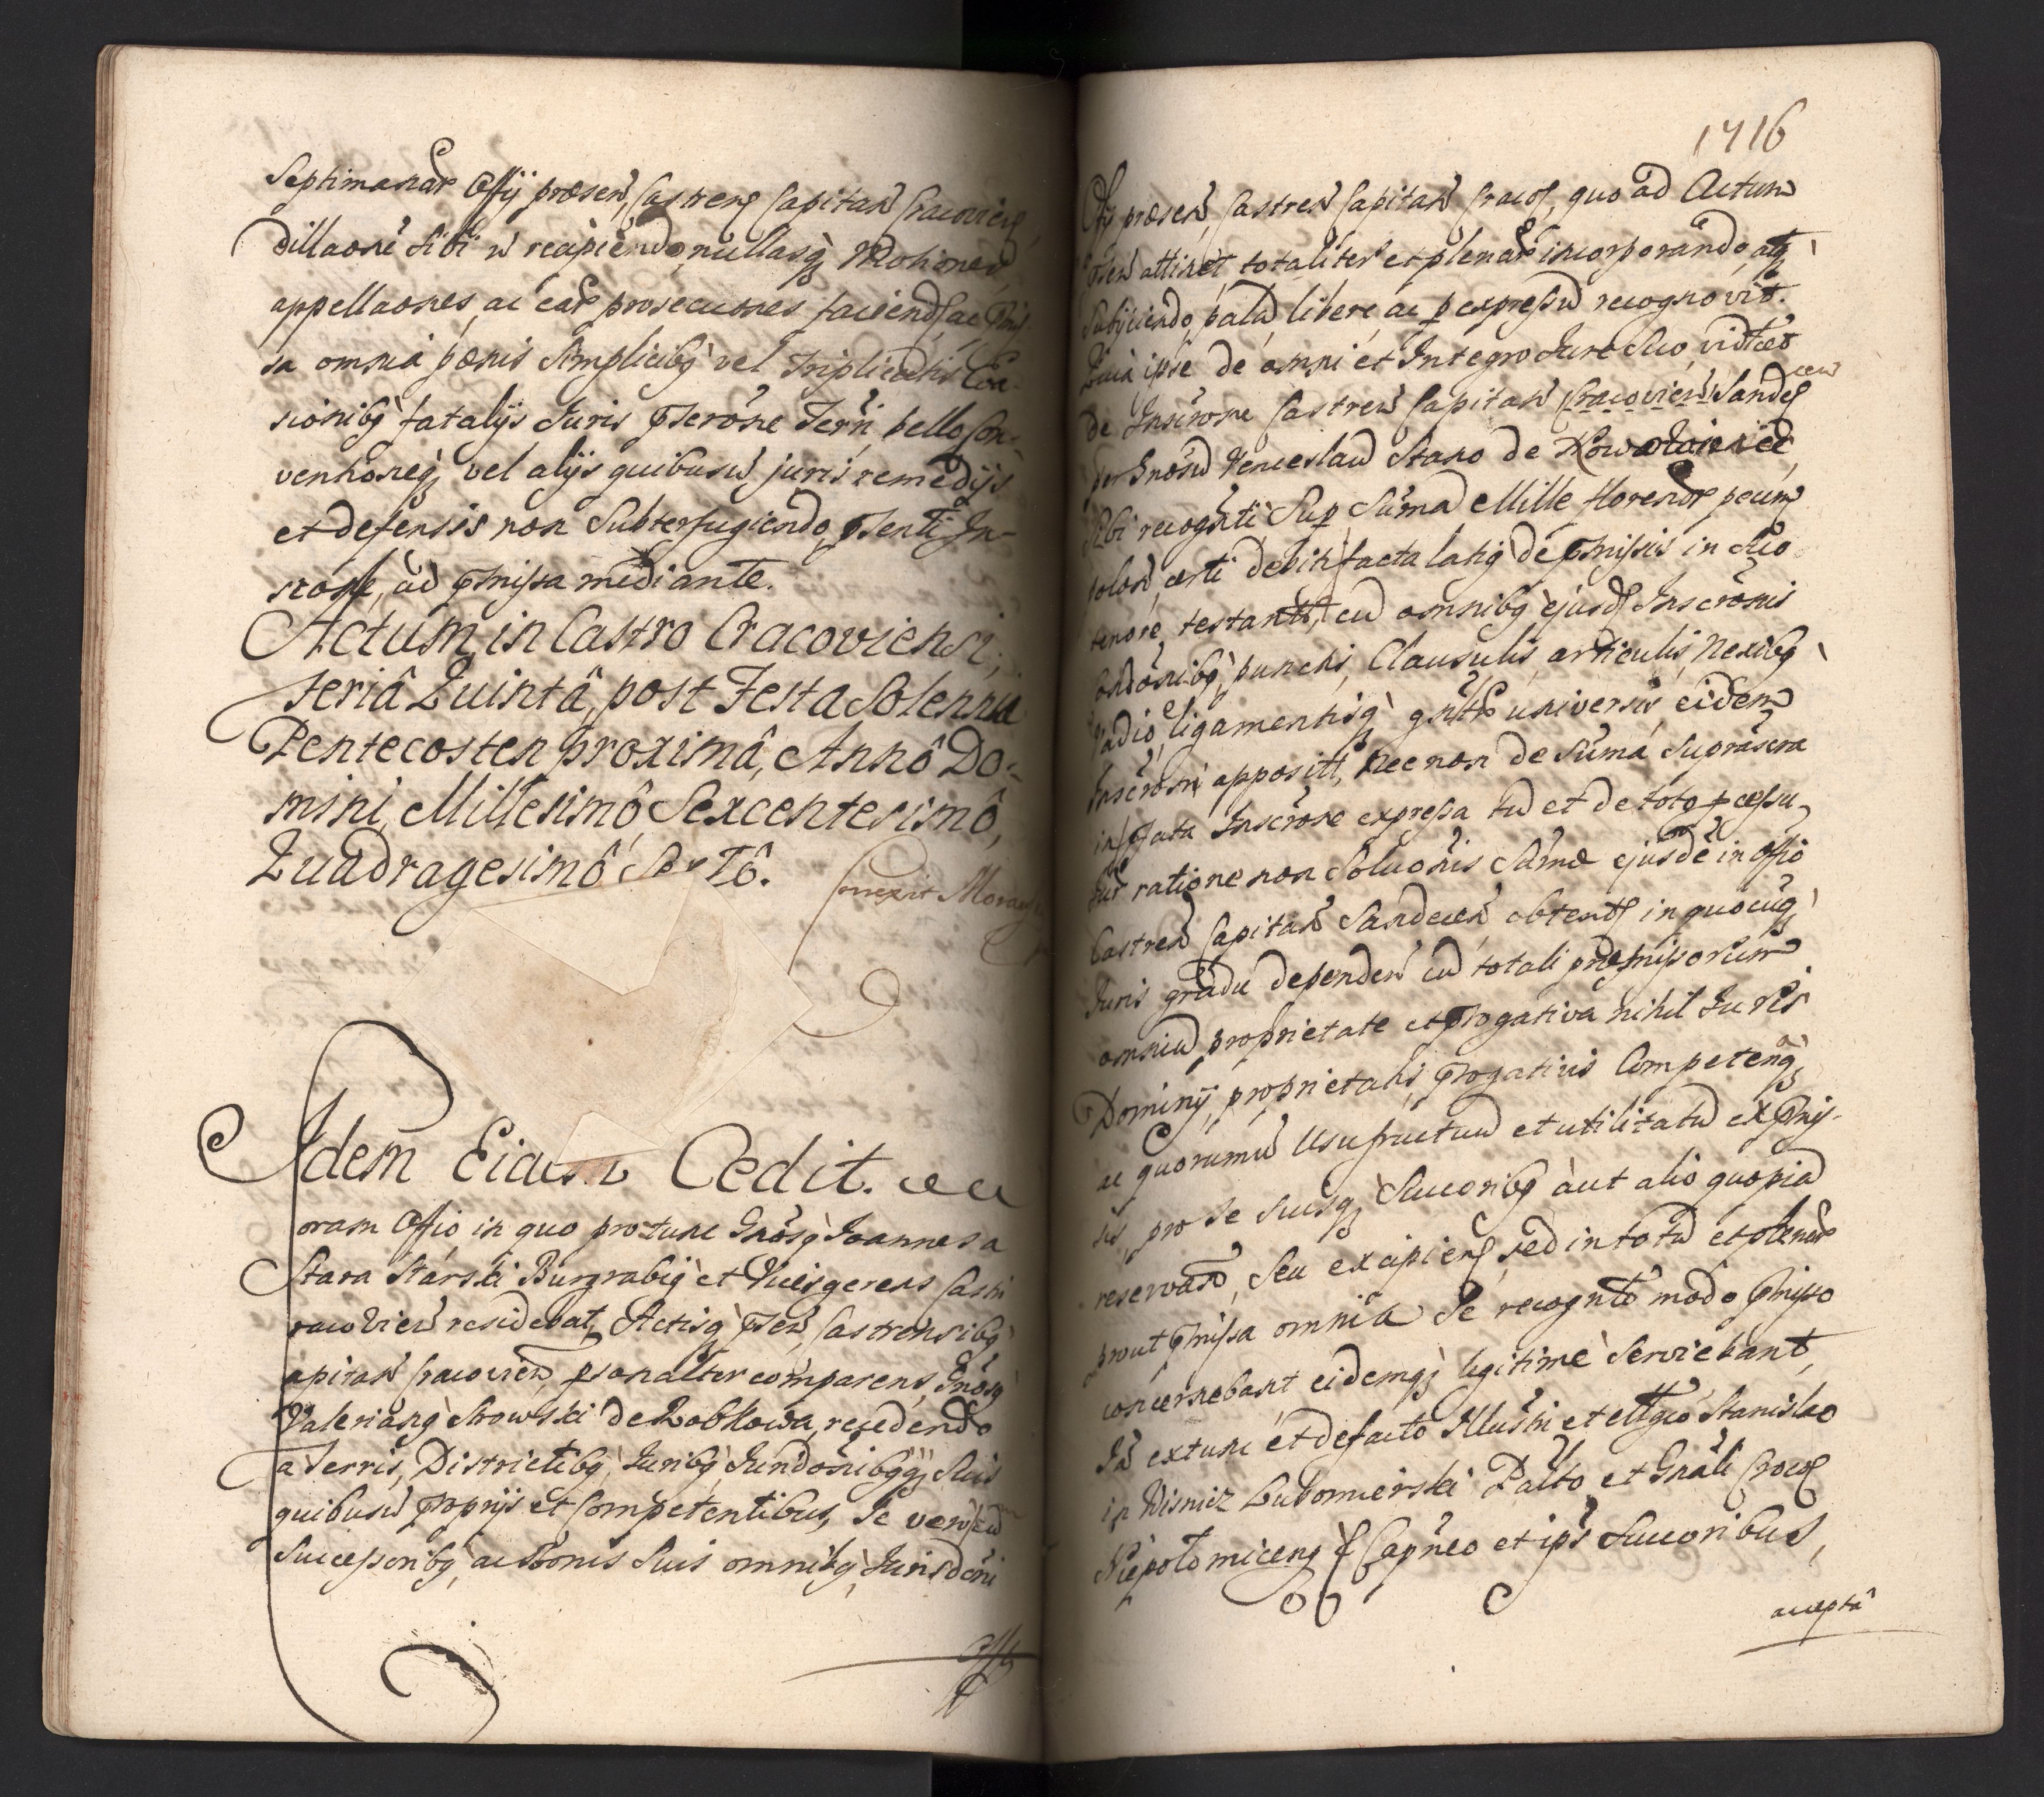 Septimanar Offij præsen, Castren Capitan Cracovien,
dillaone sibi n recipiendo, nullasq motiones
appellaones, ac ear prosecuones faciend, ac pmis
sa omnia pœnis simplicibq vel triplicatis
sionibq fatalijs Juris pserone Terri bello Con-
ventioneq vel alijs quibusw juris remedijs
et defensis non Subterfugiendo psenti In-
scrone, ad pmissa mediante.
Actum in Castro Cracoviensi,
feriâ Quintâ, post Festa Solennia
Pentecosten proximâ, Annô Do-
mini, Millesimô Sexcentesimô,
Quadragesimô Sextô.
Correxit
Idem Cedit.
oram Offio in quo pro tunc Gnosq Joannes a
Stara Starski Burgrabiq et Vicesgerens Castri
racovien residebat, Actisq psen, Castrensibq
apitan Cracovien, psonaliter comparens, Gnosq
Valerianq Strowski de Lobkowa, recedendo
a Terris, Districtibq, Juribq Jurisdonibqq Suis
quibusw proprijs et Competentibus, Se vero cu
Successoribq, ac Bonis Suis omnibq Jurisdoni
Offij
1716
Offij præsen, Castren Capitan Cracov, quo ad Actum
psen attinet, totaliter et plenar incorporando, atq
Subijciendo, palad, libere, ac p expressu recognovit.
Quia ipse de omni et Integro Jure Suo, vidtcet
de Inscrone Castren Capitan Cracovien Sandec
cen
per Gnosu Venceslau Stano de
Sibi recognti Sup Suma Mille florenor pecun
polon, certi debiti facta latiq de pmissis in Suo
tenore testant, cu omnibq ejusd Inscronis
ondonibq, punctis, Clausulis, articulis, Nexibq
Vadio, ligamentisq gnltr universis eidem
Inscroni appositt, Nec non de Suma Suprascra
in pfata Inscrone expressa tu et de toto pcessu
Jur ratione non Soluonis Sumæ ejusde in Offio
Castren Capitan Sandecen obtent, in quocuq
Juris gradu dependen cu totali præmissorum
omniu, proprietate et progativa nihil Juris
Dominij, proprietatis, progativis Competenq
ac quorumu Usufructuu et utilitatu ex pmis-
sis, pro Se Suisq Succoribq aut alio quopia
reservan, Seu excipien, sed in totu et plenar
prout pmissa omnia Se recognto modo pmisso
concernebant, eidemq legitime Serviebant,
Ja extunc et defacto Illustri et Mgco Stanislao
in Wisnicz Lubomierski Palto et Gnali Cracov
Niepolomicenq Capneo et ips Succoribus,
acceptâ